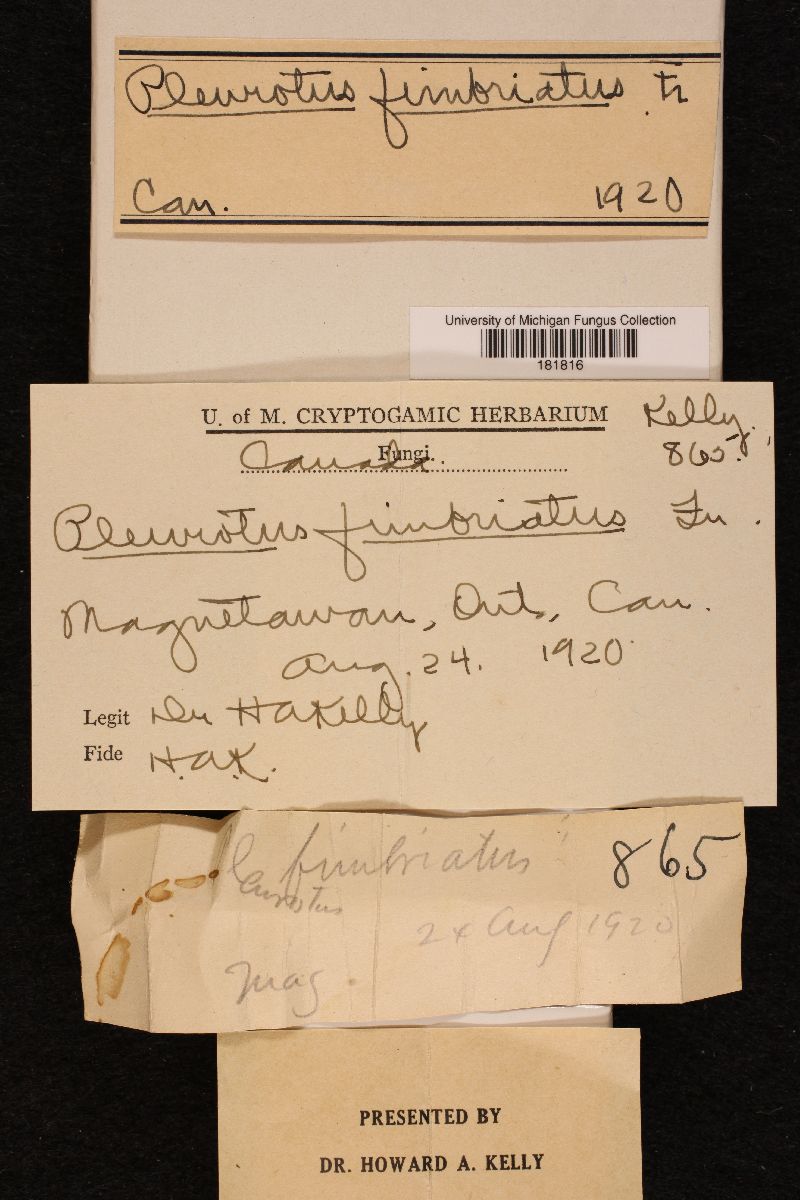 Pleurotus fimbriatus Fr
Can. 1920
University of Michigan Fungus Collection
181816
U. of M. CRYPTOGAMIC HERBARIUM
Kelly.
865.
Fungi
Canada.
Pleurotus fimbriatus Fr.
Magnetawan, Ont., Can.
Aug. 24. 1920
Legit Dr HAKelly
Fide H.A.K.
fimbriatus 865
24 Aug 1920
Mag.
PRESENTED BY
DR. HOWARD A. KELLY